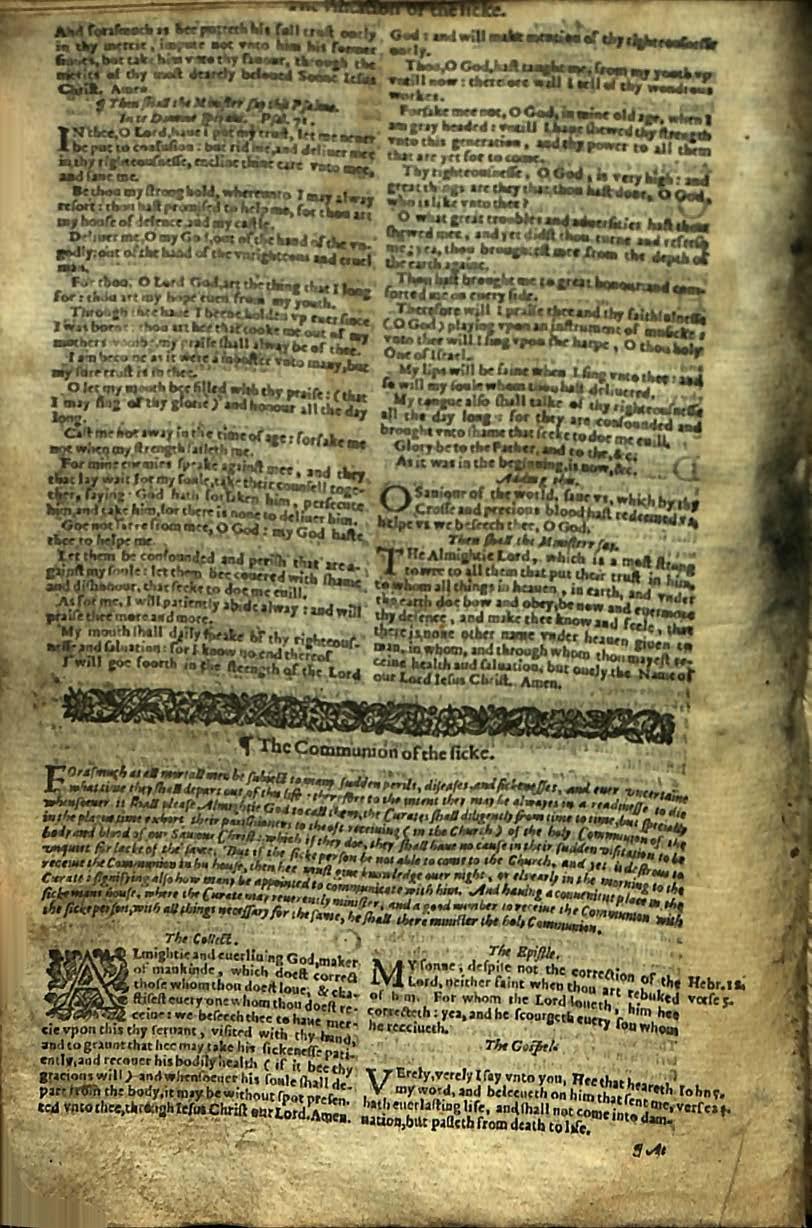 The Visitation of the sicke.
And forasmuch as hee putteth his full trust onely
in thy mercie, impute not vnto him his former
sinnes, but take him vnto thy fauour, through the
merits of thy most dearely beloued Sonne Iesus
Christ. Amen.
¶ Then shall the Minister say this Psalme.
In te Domine speraui. Psal. 71.
IN thee, O Lord, haue I put my trust, let me neuer
be put to confusion: but rid me, and deliuer mee
in thy righteousnesse, encline thine eare vnto mee,
and saue me.
Be thou my strong hold, whereunto I may alway
resort: thou hast promised to help me, for thou art
my house of defence, and my castle.
Deliuer me, O my God, out of the hand of the vn-
godly: out of the hand of the vnrighteous and cruel
man.
For thou, O Lord God, art the thing that I long
for: thou art my hope euen from my youth.
Through thee haue I beene holden vp euer since
I was borne: thou art hee that tooke me out of my
mothers wombe, my praise shall alway be of thee.
I am become as it were a monster vnto many, but
my sure trust is in thee.
O let my mouth bee filled with thy praise: (that
I may sing of thy glorie) and honour all the day
long.
Cast me not away in the time of age: forsake me
not when my strength faileth me.
For mine enemies speake against mee, and they
that lay wait for my soule, take their counsell toge-
ther, saying: God hath forsaken him, persecute
him, and take him, for there is none to deliuer him.
Goe not farre from mee, O God: my God haste
thee to helpe me.
Let them be confounded and perish that are a-
gainst my soule: let them bee couered with shame
and dishonour, that seeke to doe me euill.
As for me, I will patiently abide alway: and will
praise thee more and more.
My mouth shall daily speake of thy righteous-
nesse and saluation: for I know no end thereof.
I will goe foorth in the strength of the Lord
God: and will make mention of thy righteousnesse
onely.
Thou, O God, hast taught me, from my youth vp
vntill now: therefore will I tell of thy wondrous
workes.
Forsake mee not, O God, in mine old age, when I
am gray headed: vntill I haue shewed thy strength
vnto this generation, and thy power to all them
that are yet for to come.
Thy righteousnesse, O God, is very high: and
great things are they that thou hast done, O God,
who is like vnto thee?
O what great troubles and aduersities hast thou
shewed mee, and yet didst thou turne and refresh
me: yea, thou broughtest mee from the depth of
the earth againe.
Thou hast brought me to great honour and com-
forted me on euery side.
Therefore will I praise thee and thy faithfulnesse
(O God) playing vpon an instrument of musicke:
vnto thee will I sing vpon the harpe, O thou holy
One of Israel.
My lips will be faine when I sing vnto thee: and
so will my soule whom thou hast deliuered.
My tongue also shall talke of thy righteousnesse
all the day long: for they are confounded and
brought vnto shame that seeke to doe me euill.
Glory be to the Father, and to the, &c.
As it was in the beginning, is now, &c.
Adding this.
O Sauiour of the world, saue vs, which by thy
Crosse and precious blood hast redeemed vs,
helpe vs we beseech thee, O God.
Then shall the Minister say.
THe Almightie Lord, which is a most strong
towre to all them that put their trust in him,
to whom all things in heauen, in earth, and vnder
the earth doe bow and obey, be now and euermore
thy defence, and make thee know and feele, that
there is none other name vnder heauen giuen to
man, in whom, and through whom thou mayest re-
ceiue health and saluation, but onely the Name of
our Lord Iesus Christ. Amen.
¶ The Communion of the sicke.
FOrasmuch as all mortall men be subiect to many sudden perils, diseases and sickenesses, and euer vncertaine
what time they shall depart out of this life: therefore to the intent they may be alwayes in a readinesse to die
whensoeuer it shall please Almightie God to call them, the Curates shall diligently from time to time, but specially
in the plague time exhort their parishioners to the oft receiuing (in the Church) of the holy Communion of the
body and blood of our Sauiour Christ: which if they doe, they shall haue no cause in their sudden visitation to be
vnquiet for lacke of the same. But if the sicke person be not able to come to the Church, and yet is desirous to
receiue the Communion in his house, then hee must giue knowledge ouer night, or els early in the morning to the
Curate: signifying also how many be appointed to communicate with him. And hauing a conuenient place in the
sicke mans house, where the Curate may reuerently minister, and a good number to receiue the Communion with
the sicke person, with all things necessary for the same, he shall there minister the holy Communion.
The Collect.
ALmightie and euerliuing God, maker
of mankinde, which doest correct
those whom thou doest loue, & cha-
stisest euery one whom thou doest re-
ceiue: we beseech thee to haue mer-
cie vpon this thy seruant, visited with thy hand,
and to graunt that hee may take his sickenesse pati-
ently, and recouer his bodily health (if it bee thy
gracious will) and whensoeuer his soule shall de-
part from the body, it may be without spot presen-
ted vnto thee, through Iesus Christ our Lord. Amen.
The Epistle.
MY sonne, despise not the correction of the
Lord, neither faint when thou art rebuked
of him. For whom the Lord loueth, him hee
correcteth: yea, and he scourgeth euery son whom
he receiueth.
Hebr. 12.
verse 5.
The Gospel.
VErely, verely I say vnto you, Hee that heareth
my word, and beleeueth on him that sent me,
hath euerlasting life, and shall not come into dam-
nation, but passeth from death to life.
Iohn 5.
verse 24.
¶ At